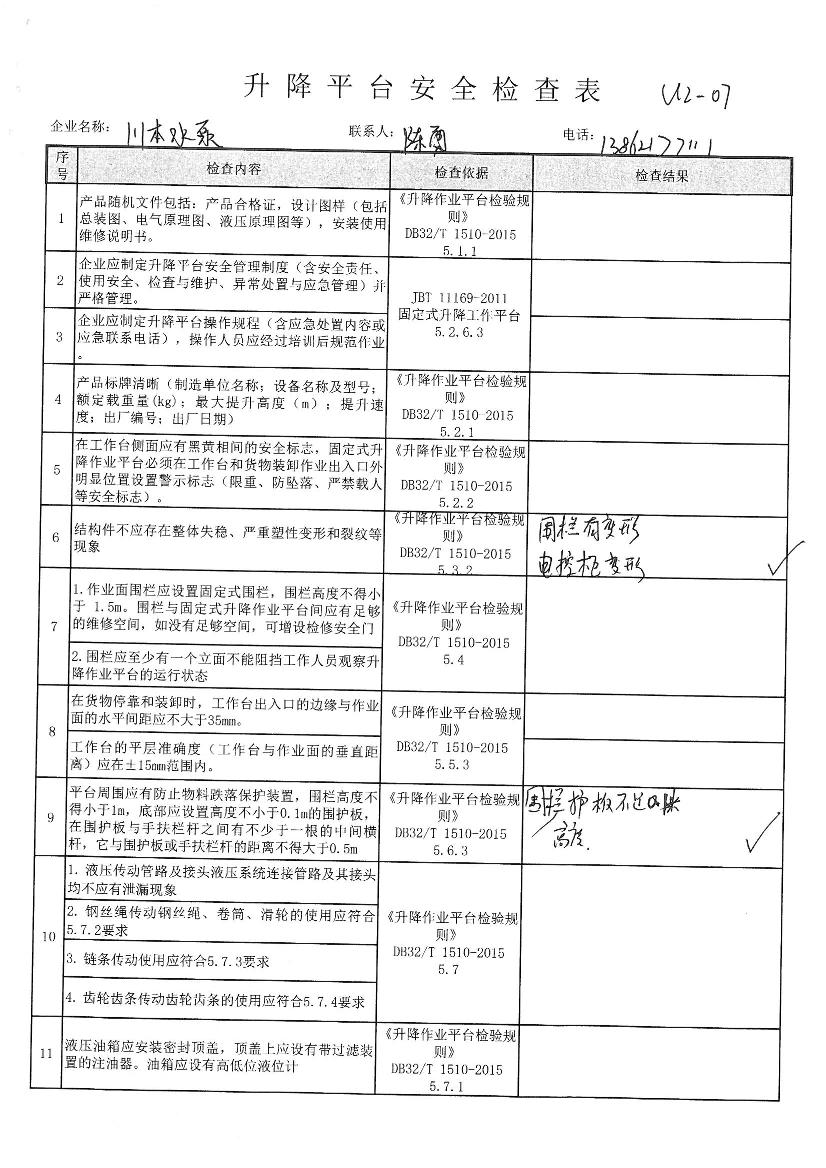 升降平台安全检查表 U2-07
企业名称： 川本水泵 联系人： 陈勇 电话： 13862177111
序号 检查内容 检查依据 检查结果
1
产品随机文件包括：产品合格证，设计图样（包括
总装图、电气原理图、液压原理图等），安装使用
维修说明书。
《升降作业平台检验规
则》
DB32/T 1510-2015
5.1.1
2
企业应制定升降平台安全管理制度（含安全责任、
使用安全、检查与维护、异常处置与应急管理）并
严格管理。
JBT 11169-2011
固定式升降工作平台
5.2,6.3
3
企业应制定升降平台操作规程（含应急处置内容或
应急联系电话），操作人员应经过培训后规范作业
。
4
产品标牌清晰（制造单位名称；设备名称及型号；
额定载重量(kg)；最大提升高度（m）；提升速
度；出厂编号；出厂日期）
《升降作业平台检验规
则》
DB32/T 1510-2015
5.2.1
5
在工作台侧面应有黑黄相间的安全标志，固定式升
降作业平台必须在工作台和货物装卸作业出入口外
明显位置设置警示标志（限重、防坠落、严禁载人
等安全标志）。
《升降作业平台检验规
则》
DB32/T 1510-2015
5.2.2
6
结构件不应存在整体失稳、严重塑性变形和裂纹等
现象
《升降作业平台检验规
则》
DB32/T 1510-2015
5.3.2
围栏有变形
电控柜变形 ✓
7
1.作业面围栏应设置固定式围栏，围栏高度不得小
于 1.5m。围栏与固定式升降作业平台间应有足够
的维修空间，如没有足够空间，可增设检修安全门
2.围栏应至少有一个立面不能阻挡工作人员观察升
降作业平台的运行状态
《升降作业平台检验规
则》
DB32/T 1510-2015
5.4
8
在货物停靠和装卸时，工作台出入口的边缘与作业
面的水平间距应不大于35mm。
工作台的平层准确度（工作台与作业面的垂直距
离）应在±15mm范围内。
《升降作业平台检验规
则》
DB32/T 1510-2015
5.5.3
9
平台周围应有防止物料跌落保护装置，围栏高度不
得小于1m，底部应设置高度不小于0.1m的围护板，
在围护板与手扶栏杆之间有不少于一根的中间横
杆，它与围护板或手扶栏杆的距离不得大于0.5m
《升降作业平台检验规
则》
DB32/T 1510-2015
5.6.3
围栏护板不
高度. ✓
10
1. 液压传动管路及接头液压系统连接管路及其接头
均不应有泄漏现象
2. 钢丝绳传动钢丝绳、卷筒、滑轮的使用应符合
5.7.2要求
3. 链条传动使用应符合5.7.3要求
4. 齿轮齿条传动齿轮齿条的使用应符合5.7.4要求
《升降作业平台检验规
则》
DB32/T 1510-2015
5.7
11
液压油箱应安装密封顶盖，顶盖上应设有带过滤装
置的注油器。油箱应设有高低位液位计
《升降作业平台检验规
则》
DB32/T 1510-2015
5.7.1